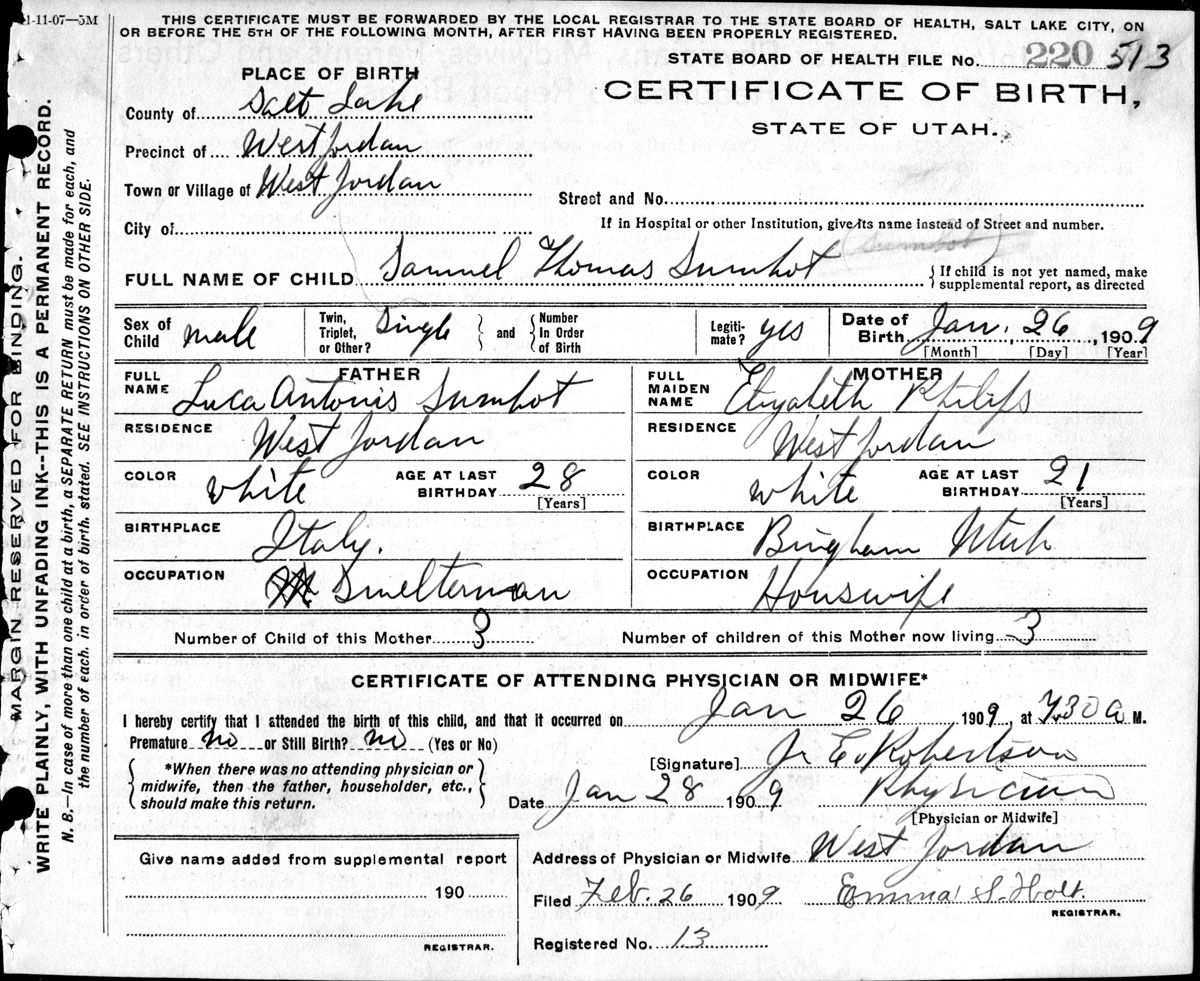 1-11-07—5M
THIS CERTIFICATE MUST BE FORWARDED BY THE LOCAL REGISTRAR TO THE STATE BOARD OF HEALTH, SALT LAKE CITY, ON
OR BEFORE THE 5TH OF THE FOLLOWING MONTH, AFTER FIRST HAVING BEEN PROPERLY REGISTERED.
STATE BOARD OF HEALTH FILE No. 220 513
PLACE OF BIRTH
CERTIFICATE OF BIRTH,
STATE OF UTAH.
County of Salt Lake
Precinct of West Jordan
Town or Village of West Jordan
Street and No.
City of
If in Hospital or other Institution, give its name instead of Street and number.
(Sumbot)
FULL NAME OF CHILD Samuel Thomas Sumbot
{ If child is not yet named, make
supplemental report, as directed
Sex of Child male
Twin, Triplet, or Other? Single } and { Number In Order of Birth
Legitimate? yes
Date of Birth Jan. 26, 1909
[Month] [Day] [Year]
FATHER
FULL NAME Luca Antonis Sumbot
RESIDENCE West Jordan
COLOR white AGE AT LAST BIRTHDAY 28
[Years]
BIRTHPLACE Italy.
OCCUPATION Smelterman
MOTHER
FULL MAIDEN NAME Elizabeth Philips
RESIDENCE West Jordan
COLOR white AGE AT LAST BIRTHDAY 21
[Years]
BIRTHPLACE Bingham Utah
OCCUPATION Houswife
Number of Child of this Mother 3 Number of children of this Mother now living 3
CERTIFICATE OF ATTENDING PHYSICIAN OR MIDWIFE*
I hereby certify that I attended the birth of this child, and that it occurred on Jan 26, 1909, at 7:30 a M.
Premature no or Still Birth? no (Yes or No)
[Signature] E. Robertson
{ *When there was no attending physician or
midwife, then the father, householder, etc.,
should make this return. }
Date Jan 28 1909 Physician
[Physician or Midwife]
Give name added from supplemental report
190
REGISTRAR.
Address of Physician or Midwife West Jordan
Filed Feb. 26 1909 Emma S. Holt.
REGISTRAR.
Registered No. 13
MARGIN RESERVED FOR BINDING.
WRITE PLAINLY, WITH UNFADING INK--THIS IS A PERMANENT RECORD.
N. B.—In case of more than one child at a birth, a SEPARATE RETURN must be made for each, and
the number of each, in order of birth, stated. SEE INSTRUCTIONS ON OTHER SIDE.